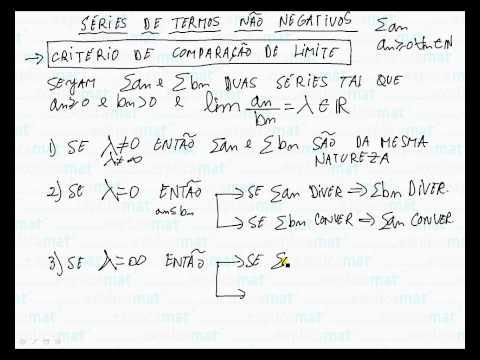 SÉRIES DE TERMOS NÃO NEGATIVOS
Σan
an≥0 ∀n∈N
→ CRITÉRIO DE COMPARAÇÃO DE LIMITE
SEJAM Σan e Σbn DUAS SÉRIES TAL QUE
an≥0 e bn>0 e lim an/bn = λ ∈ R
1) SE λ≠0 ENTÃO Σan e Σbn SÃO DA MESMA
λ≠∞ NATUREZA
2) SE λ=0 ENTÃO → SE Σan DIVER ⇒ Σbn DIVER.
an≤bn → SE Σbn CONVER ⇒ Σan CONVER
3) SE λ=∞ ENTÃO → SE Σ
→